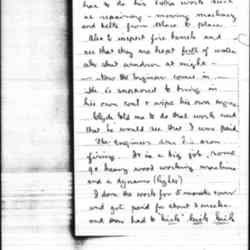 has to do his other work such
as repairing - moving machinery
and belts from place to place.
Also to inspect fire barrels and
see that they are kept full of water
also shut windows at night -
Also the Engineer comes in
He is supposed to bring in
his own soap & wipe his own
Clyde told me to do that work and
that he would see that I was paid.
The engineer and I are on
firing. It is a big job, some
heavy wood working machine
and a dynamo (lights)
I done the work for months over
and got paid for about 2 weeks.
and had to "kick"